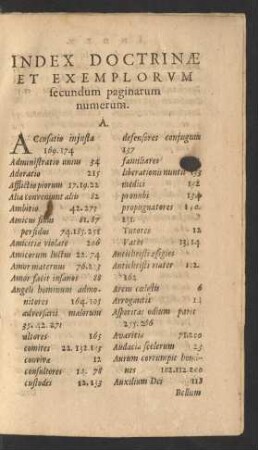 INDEX DOCTRINÆ
ET EXEMPLORVM
secundum paginarum
numerum.
A.
ACcusatio iniusta
169.174
Administratio unius 34
Adoratio 215
Afflictio piorum 17.19.22
Alba conveniunt aliis 82
Ambitio 42.275
Amicus fidus 81.87
perfidus 74.185.251
Amicitiæ violatæ 206
Amicorum luctus 22.74
Amor maternus
Amor facit insanos 88
Angeli hominum admo-
nitores 164.205
adversarii malorum
35.42.271
ultores 165
comites
convivæ 12
consultores 10.78
custodes 12.153
defensores coniugum
157
familiares
liberationis nuntii
medici
pronubi
propugnatores
161
Tutores 12
Vates 13.14
Antichristi effigies
Antichristi natura
Arcem cælestis 6
Arrogantia
Asperitas odium parit
255.286
Avaritia
Audacia scelerum 25
Aurum corrumpit homi-
nes 102.112.200
Auxilium Dei 113
Bellum